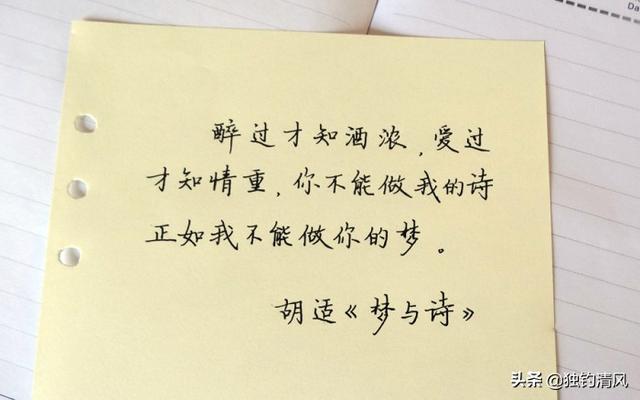 Da
醉过才知酒浓,爱过
才知情重,你不能做我的诗
正如我不能做你的梦。
胡适《梦与诗》
头条 @独钓清风